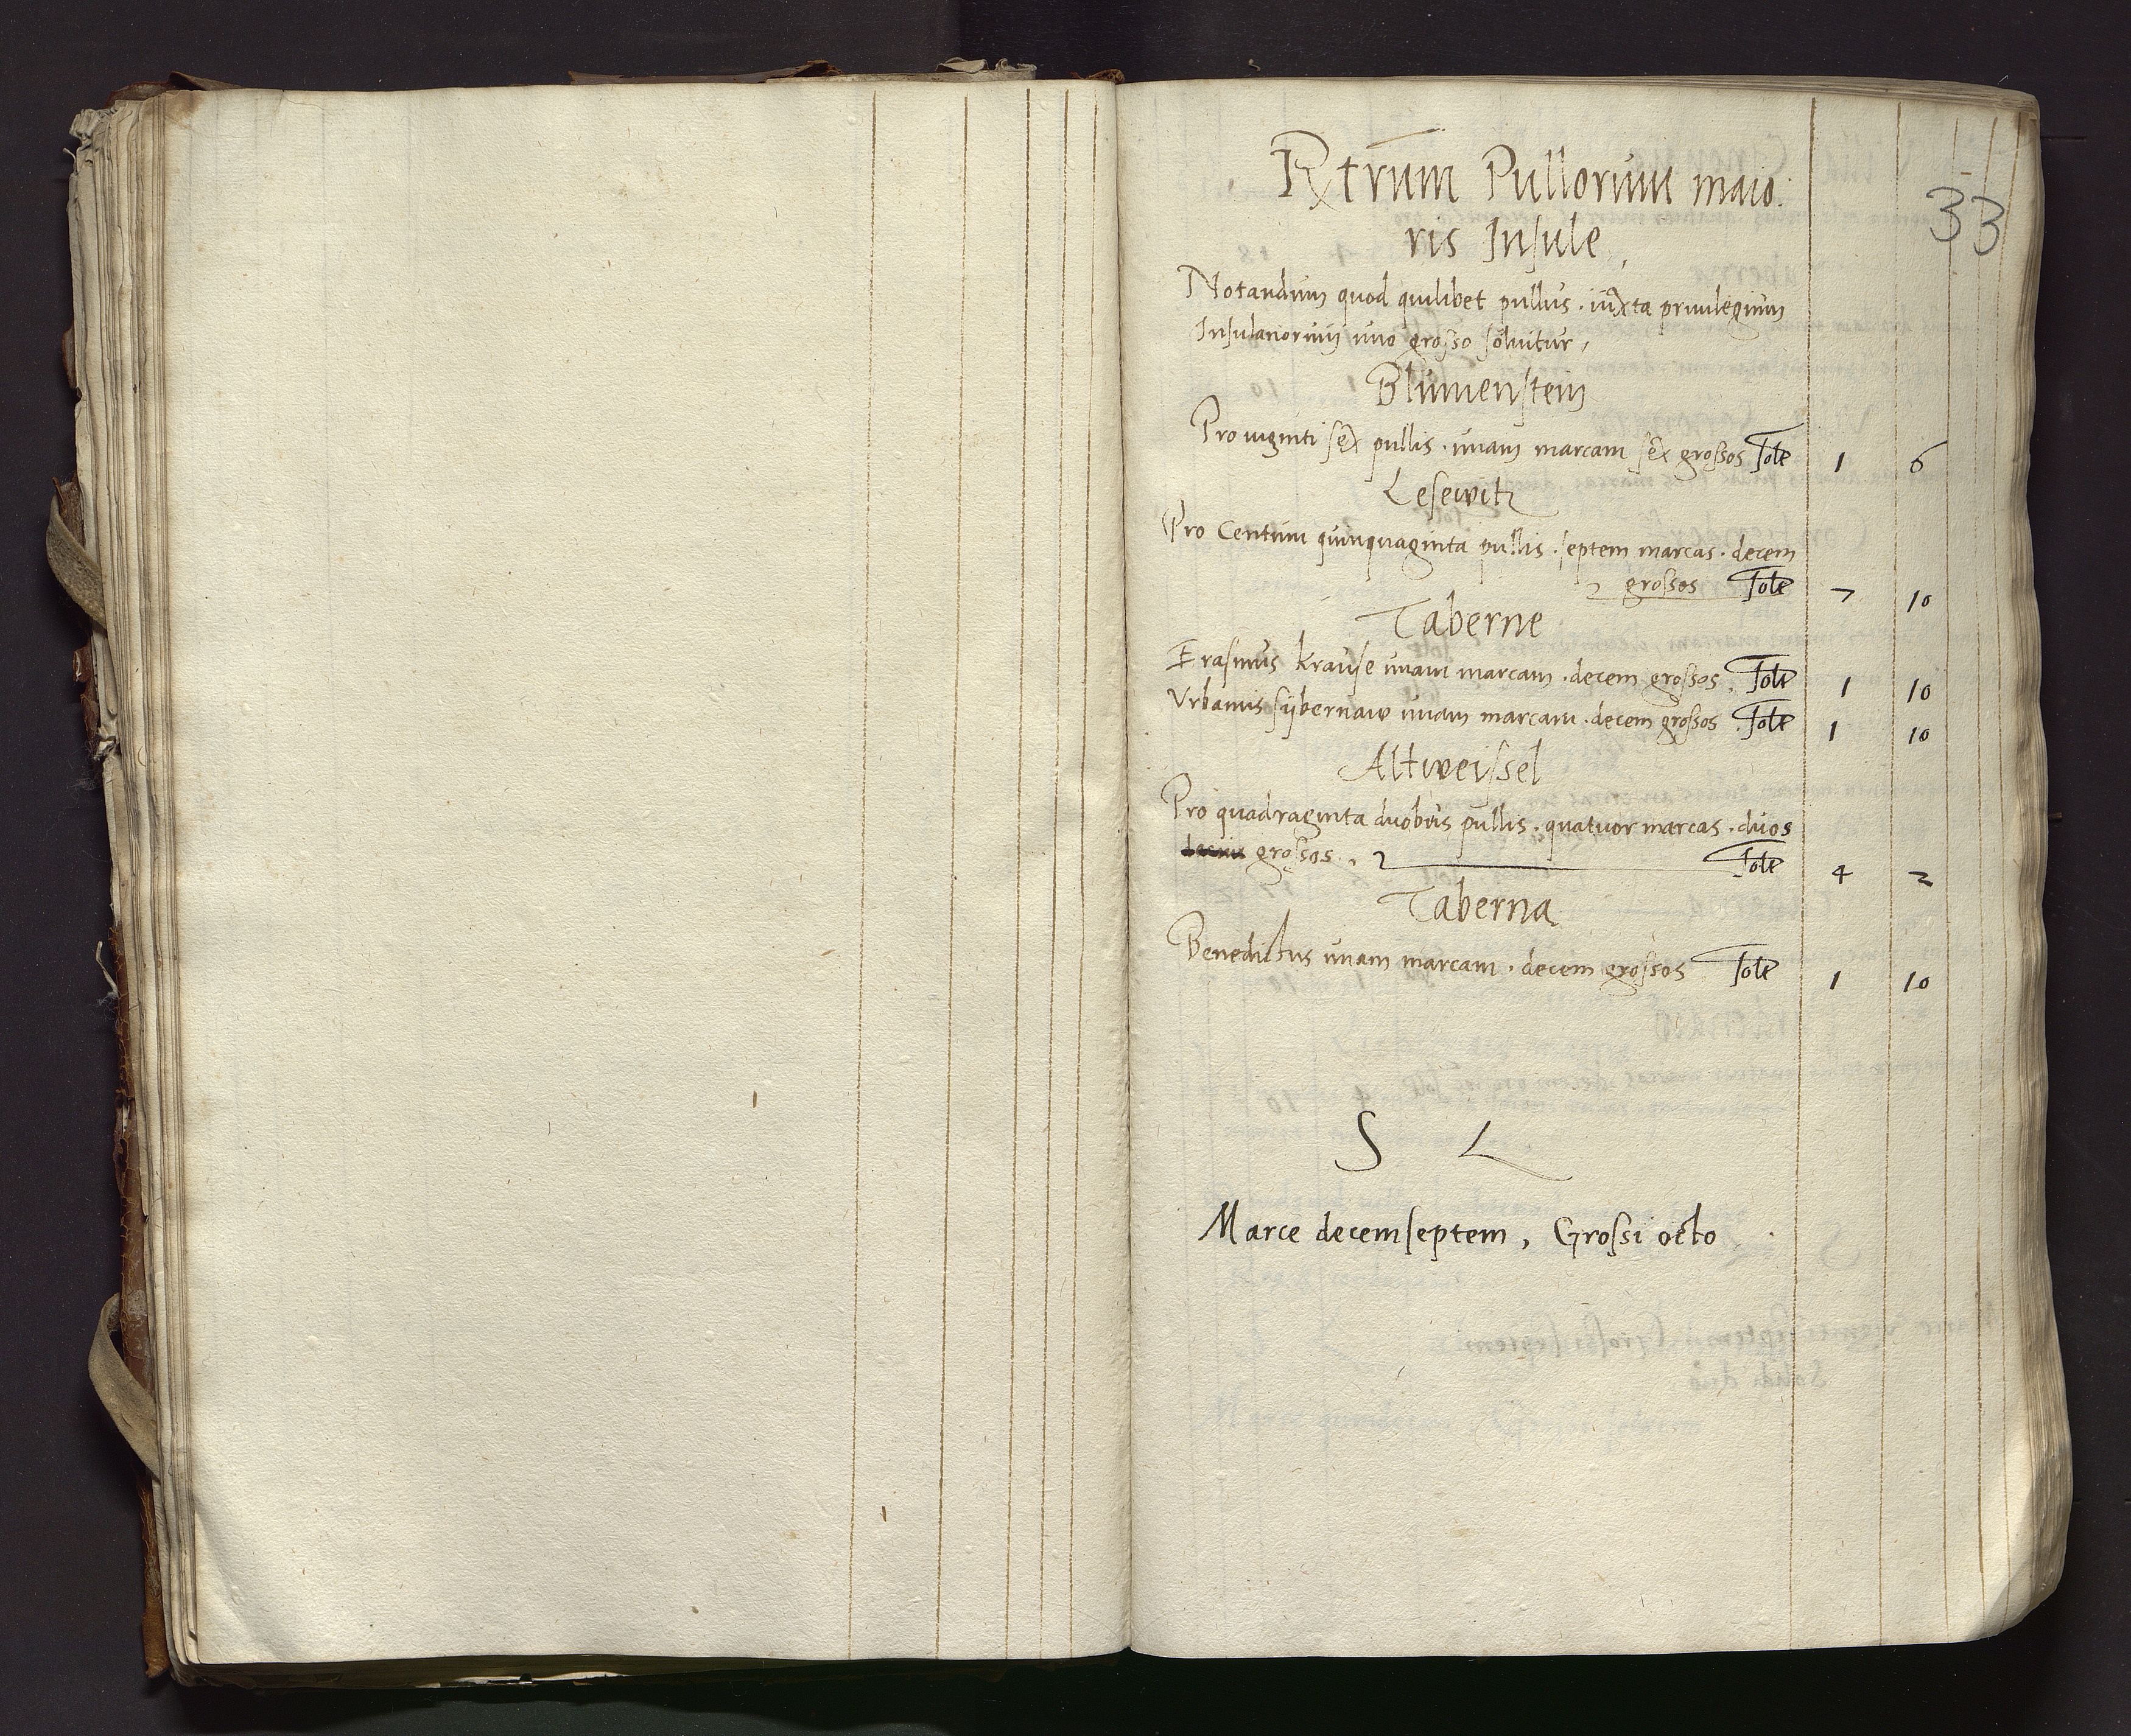 Rtrum Pullorum maio
ris Insule,
33
Notandum quod quilibet pullus. iuxta priuilegium
Insulanorum uno grosso soluitur,
Blumenstein
Pro uiginti sex pullis. unam marcam sex grossos Tote 1 6
Lesewitz
Pro Centum quinquaginta pullis. septem marcas. decem
grossos Tote 7 10
Taberne
Erasmus Krause unam marcam. decem grossos. Tote 1 10
Urbanus sijbernaw unam marcam. decem grossos Tote 1 10
Altweissel
Pro quadraginta duobus pullis. quatuor marcas. duos
grossos. Tote 4 2
Taberna
Benedictus unam marcam. decem grossos Tote 1 10
S L
Marce decemseptem, Grossi octo